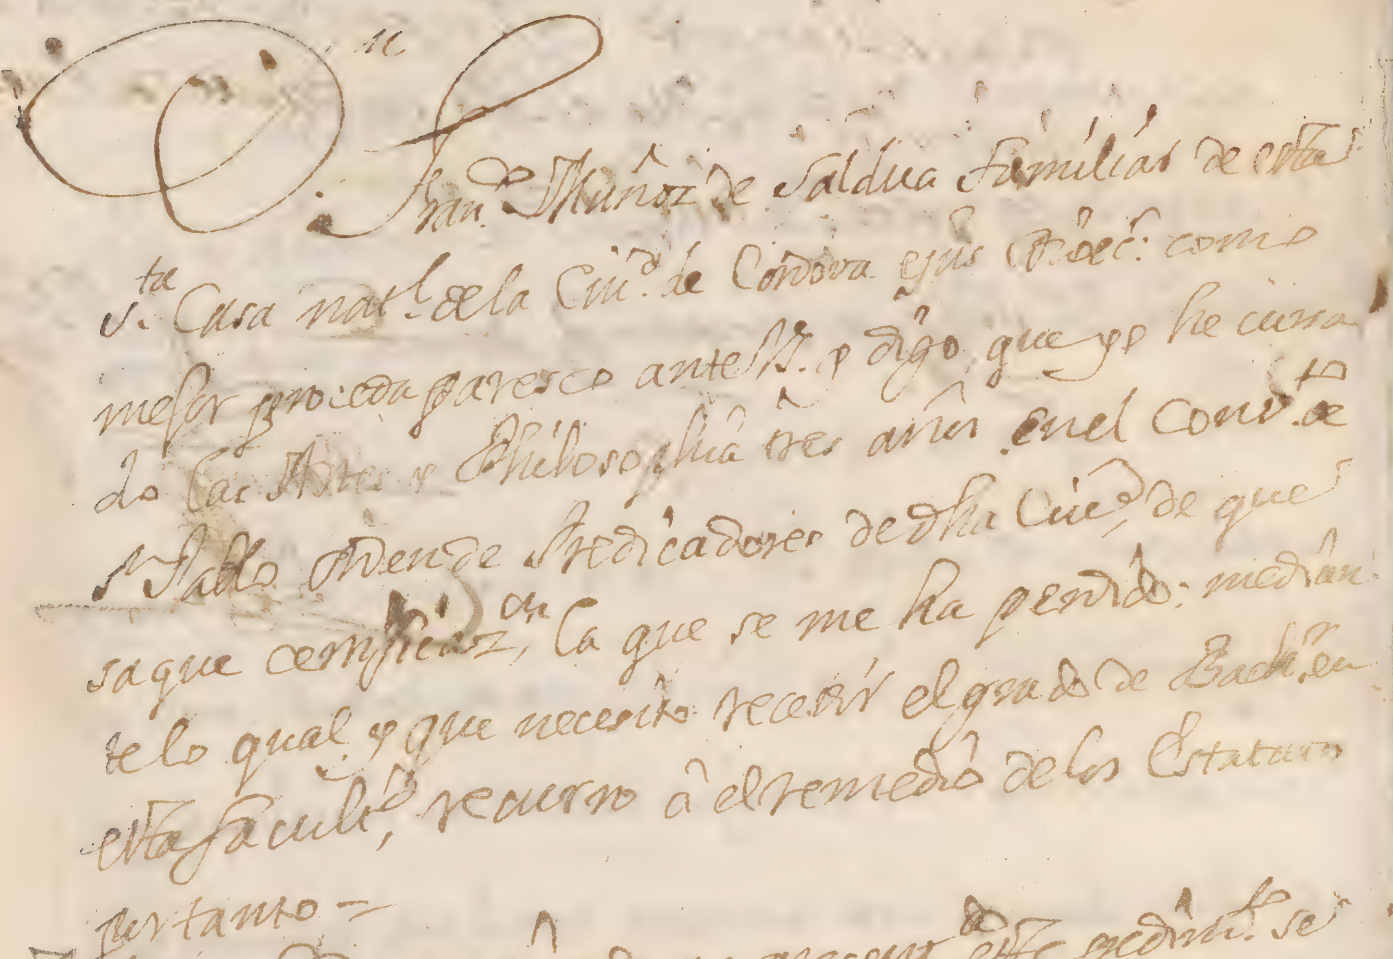 Fran.co Muñoz de Saldua familiar de esta
S.ta Casa nat.l de la Ciu.d de Cordova ejus Dioec. como
mejor proceda paresco ante y digo, que yo he cursa
do las Artes y Philosophia tres años en el Conv.to de
S.n Pablo orden de Predicadores de dha Ciu.d, de que
saque certificaz.on, la que se me ha perdido: median
te lo qual, y que necesito recevir el grado de Bach.r en
esta facult.d, recurro â el remedio de los Estatutos
por tanto =
este pedim.to se